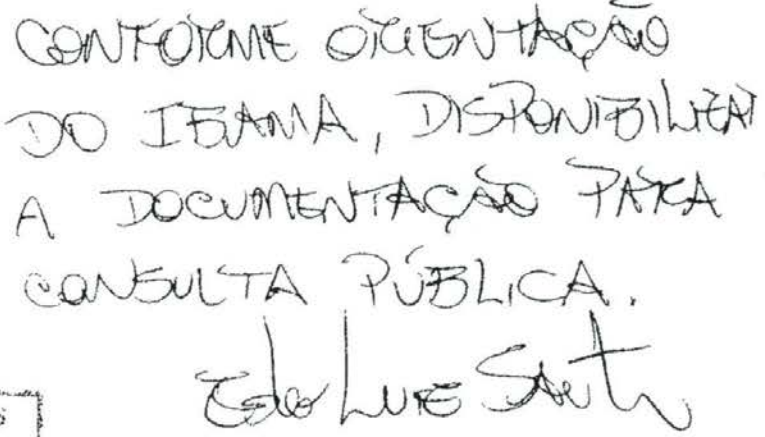 CONFORME ORIENTAÇÃO
DO IBAMA, DISPONIBILIZAR
A DOCUMENTAÇÃO PARA
CONSULTA PÚBLICA.
Luiz